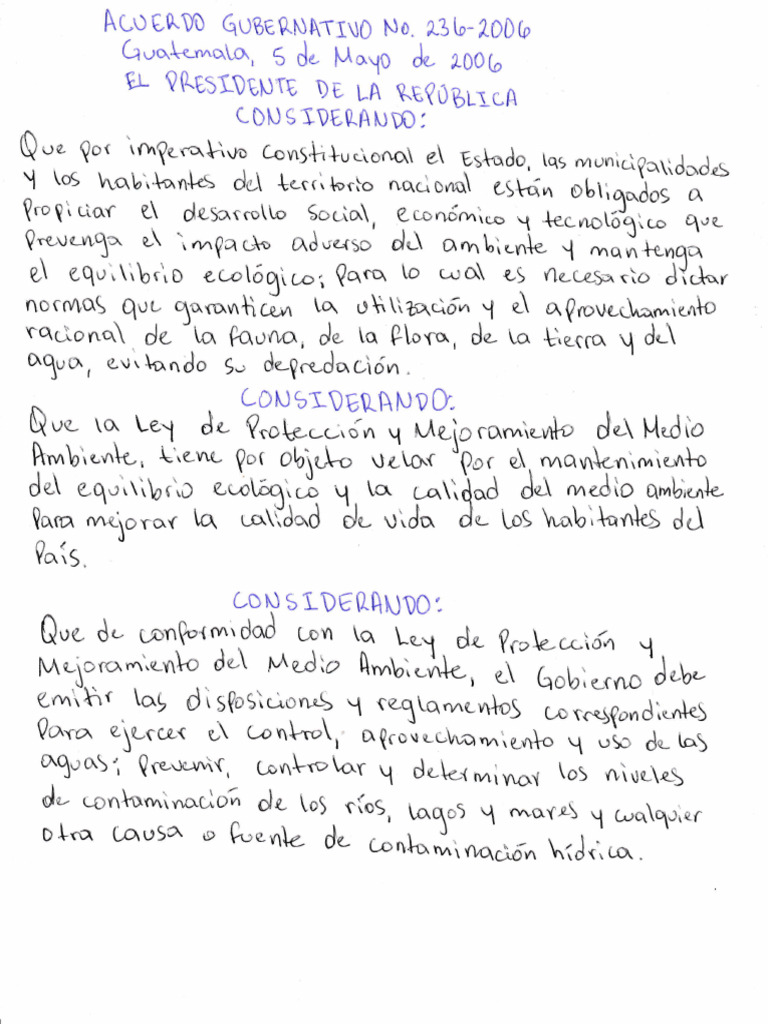 ACUERDO GUBERNATIVO No. 236-2006
Guatemala, 5 de Mayo de 2006
EL PRESIDENTE DE LA REPÚBLICA
CONSIDERANDO:
Que por imperativo Constitucional el Estado, las municipalidades
y los habitantes del territorio nacional están obligados a
Propiciar el desarrollo Social, económico y tecnológico que
Prevenga el impacto adverso del ambiente y mantenga
el equilibrio ecológico; Para lo cual es necesario dictar
normas que garanticen la utilización y el aprovechamiento
racional de la fauna, de la flora, de la tierra y del
agua, evitando su depredación.
CONSIDERANDO:
Que la Ley de Protección y Mejoramiento del Medio
Ambiente, tiene por objeto velar por el mantenimiento
del equilibrio ecológico y la calidad del medio ambiente
Para mejorar la calidad de vida de los habitantes del
País.
CONSIDERANDO:
Que de conformidad con la Ley de Protección y
Mejoramiento del Medio Ambiente, el Gobierno debe
emitir las disposiciones y reglamentos correspondientes
Para ejercer el control, aprovechamiento y uso de las
aguas; Prevenir, controlar y determinar los niveles
de contaminación de los ríos, lagos y mares y cualquier
otra causa o fuente de contaminación hídrica.